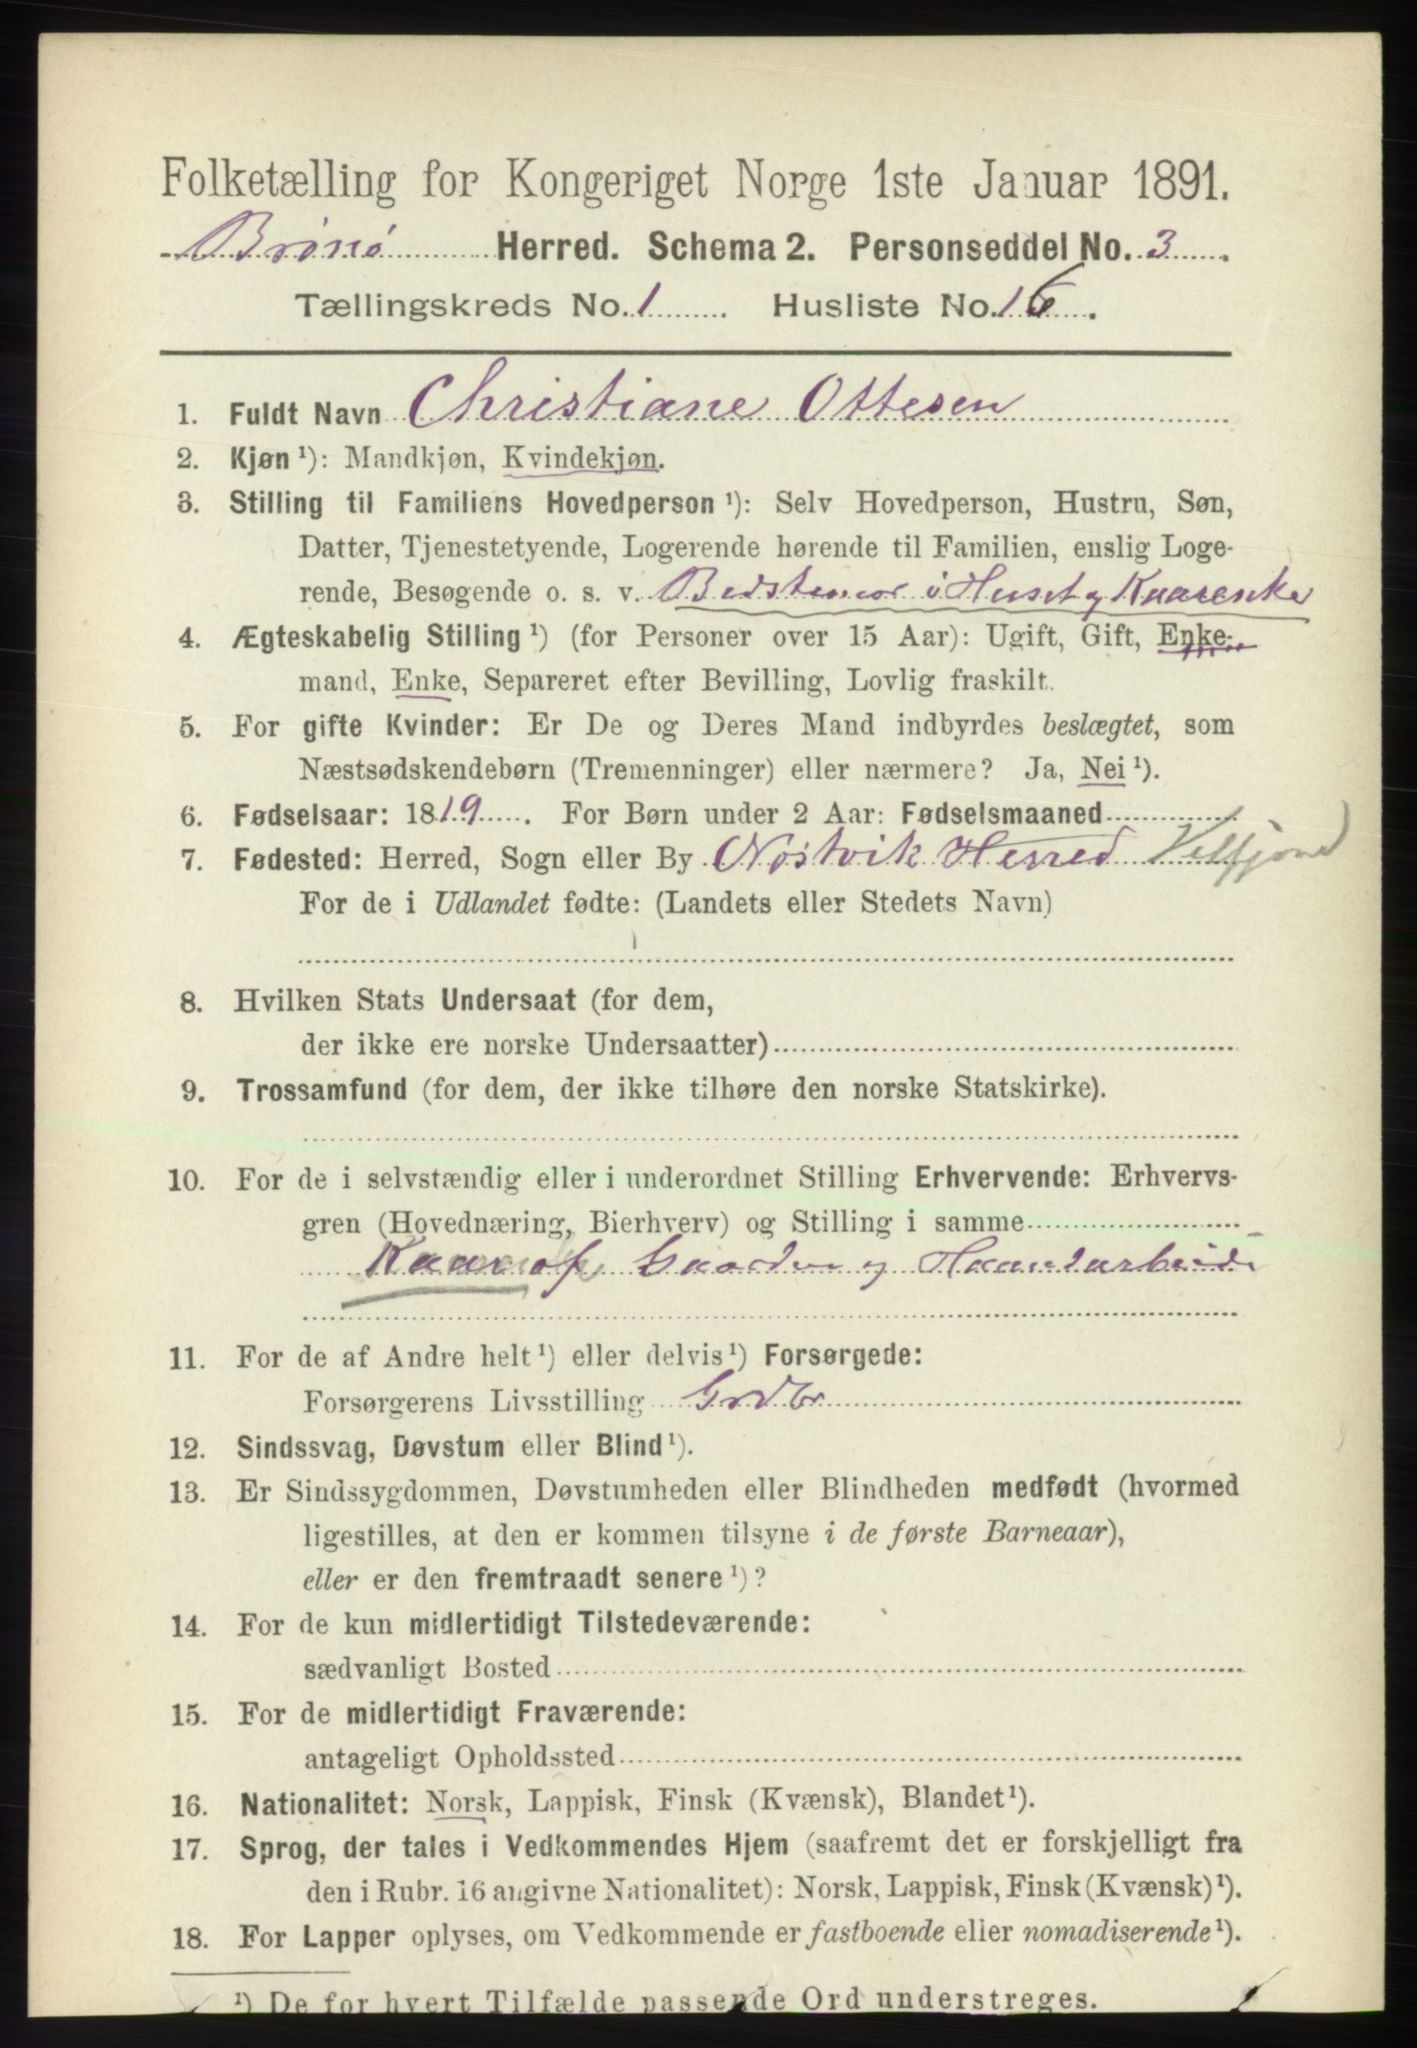 Folketælling for Kongeriget Norge 1ste Januar 1891.
Brønø Herred. Schema 2. Personseddel No. 3
Tællingskreds No. 1. Husliste No. 16.
1. Fuldt Navn Christiane Ottesen
2. Kjøn ¹): Mandkjøn, Kvindekjøn.
3. Stilling til Familiens Hovedperson ¹): Selv Hovedperson, Hustru, Søn,
Datter, Tjenestetyende, Logerende hørende til Familien, enslig Loge-
rende, Besøgende o. s. v. Bedstemor i Huset og Kaarenke
4. Ægteskabelig Stilling ¹) (for Personer over 15 Aar): Ugift, Gift, Enke-
mand, Enke, Separeret efter Bevilling, Lovlig fraskilt.
5. For gifte Kvinder: Er De og Deres Mand indbyrdes beslægtet, som
Næstsødskendebørn (Tremenninger) eller nærmere? Ja, Nei ¹).
6. Fødselsaar: 1819. For Børn under 2 Aar: Fødselsmaaned
7. Fødested: Herred, Sogn eller By Nøstvik Herred Velfjord
For de i Udlandet fødte: (Landets eller Stedets Navn)
8. Hvilken Stats Undersaat (for dem,
der ikke ere norske Undersaatter)
9. Trossamfund (for dem, der ikke tilhøre den norske Statskirke).
10. For de i selvstændig eller i underordnet Stilling Erhvervende: Erhvervs-
gren (Hovednæring, Bierhverv) og Stilling i samme
Kaar af Gaarden og Haandarbeide
11. For de af Andre helt ¹) eller delvis ¹) Forsørgede:
Forsørgerens Livsstilling Grdbr
12. Sindssvag, Døvstum eller Blind ¹).
13. Er Sindssygdommen, Døvstumheden eller Blindheden medfødt (hvormed
ligestilles, at den er kommen tilsyne i de første Barneaar),
eller er den fremtraadt senere ¹)?
14. For de kun midlertidigt Tilstedeværende:
sædvanligt Bosted
15. For de midlertidigt Fraværende:
antageligt Opholdssted
16. Nationalitet: Norsk, Lappisk, Finsk (Kvænsk), Blandet ¹).
17. Sprog, der tales i Vedkommendes Hjem (saafremt det er forskjelligt fra
den i Rubr. 16 angivne Nationalitet): Norsk, Lappisk, Finsk (Kvænsk) ¹).
18. For Lapper oplyses, om Vedkommende er fastboende eller nomadiserende ¹).
¹) De for hvert Tilfælde passende Ord understreges.